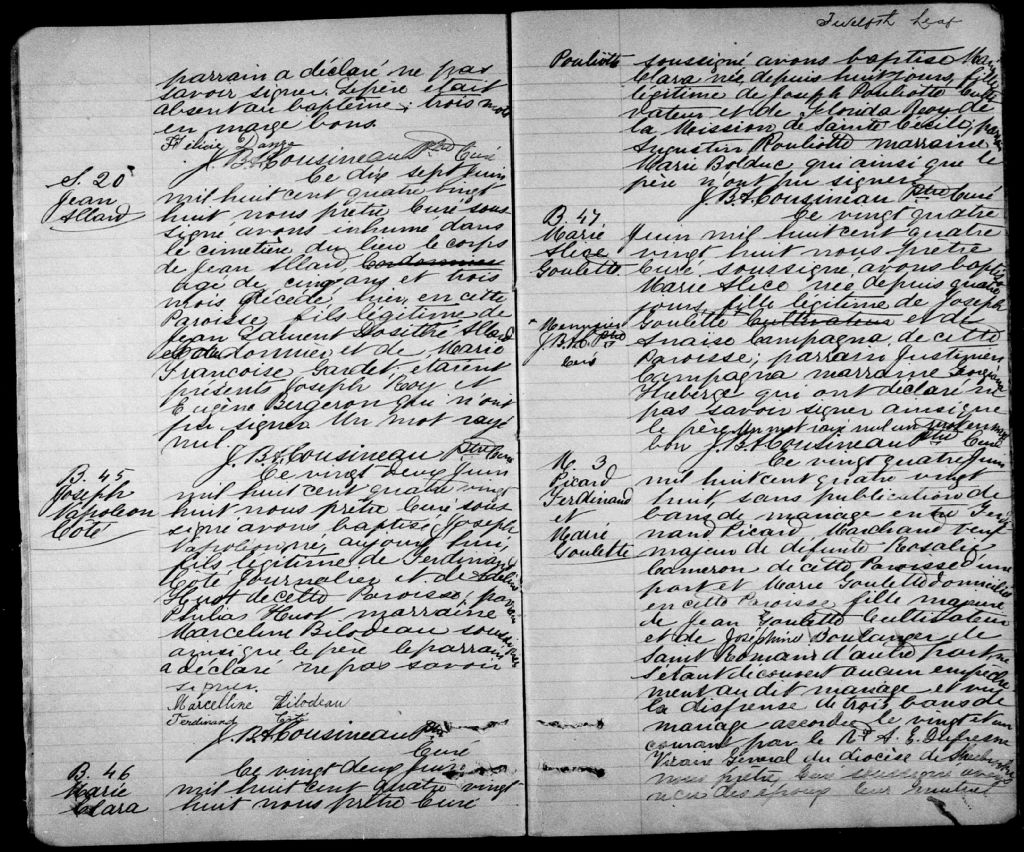 parrain a déclaré ne pas
savoir signer. Le père était
absent au baptême; trois mots
en marge bons.
J. B. A. Cousineau Ptre Curé
S. 20
Jean
Allard
Ce dix sept Juin
mil huit cent quatre vingt
huit nous prêtre Curé sous-
signé avons inhumé dans
le cimetière du lieu le corps
de Jean Allard, Cordonnier
agé de cinq ans et trois
mois décédé hier en cette
Paroisse fils légitime de
Jean Laurent Dosithé Allard
Cordonnier et de Marie
Francoise Gardet, étaient
présents Joseph Roy et
Eugène Bergeron qui n'ont
pu signer. Un mot rayé
nul.
J. B. A. Cousineau Ptre Curé
B. 45
Joseph
Napoleon
Côté
Ce vingt deux Juin
mil huit cent quatre vingt
huit nous prêtre Curé sous-
signé avons baptisé Joseph
Napoleon né aujourd'hui,
fils légitime de Ferdinand
Côté Journalier et de Adeline
Huot de cette Paroisse; parrain
Philias Huot marraine
Marceline Bilodeau
ainsi que le père le parrain
a déclaré ne pas savoir
signer.
Marcelline Bilodeau
Ferdinand Côté
J. B. A. Cousineau Ptre
Curé
B. 46
Marie
Clara
Ce vingt deux Juin
mil huit cent quatre vingt
huit nous prêtre Curé
Twelfth Leaf
Pouliotte
soussigné avons baptisé Marie
Clara née depuis huit jours, fille
légitime de Joseph Pouliotte Culti-
vateur et de Florida Roy de
la Mission de Sainte Cécile; parrain
Augustin Pouliotte marraine
Marie Bolduc qui ainsi que le
père n'ont pu signer.
J. B. A. Cousineau Ptre Curé
B. 47
Marie
Alice
Goulette
Ce vingt quatre
Juin mil huit cent quatre
vingt huit nous prêtre
Curé soussigné avons baptisé
Marie Alice née depuis quatre
jours, fille légitime de Joseph
Goulette Cultivateur et de
Campagna de cette
Paroisse; parrain
Campagna marraine
Huberge qui ont déclaré ne
pas savoir signer ainsi que
le père. Un mot rayé nul un mot en marge
bon J. B. A. Cousineau Ptre Curé
Menuisier
J. B. A. C. Ptre
Curé
M. 3
Picard
Ferdinand
et
Marie
Goulette
Ce vingt quatre Juin
mil huit cent quatre vingt
huit, sans publication de
bans de mariage entre Ferdi-
nand Picard Marchand veuf
majeur de défunte Rosalie
Cameron de cette Paroisse d'une
part et Marie Goulette domiciliée
en cette Paroisse fille majeure
de Jean Goulette Cultivateur
et de Joséphine Boulanger de
Saint Romain d'autre part ne
s'étant découvert aucun empêche-
ment au dit mariage et vu
la dispense de trois bans de
mariage accordée le vingt et un
courant par le Rd A. E. Dufresne
Vicaire Général du diocèse de Sherbrooke
nous prêtre Curé soussigné avons
reçu des époux leur mutuel